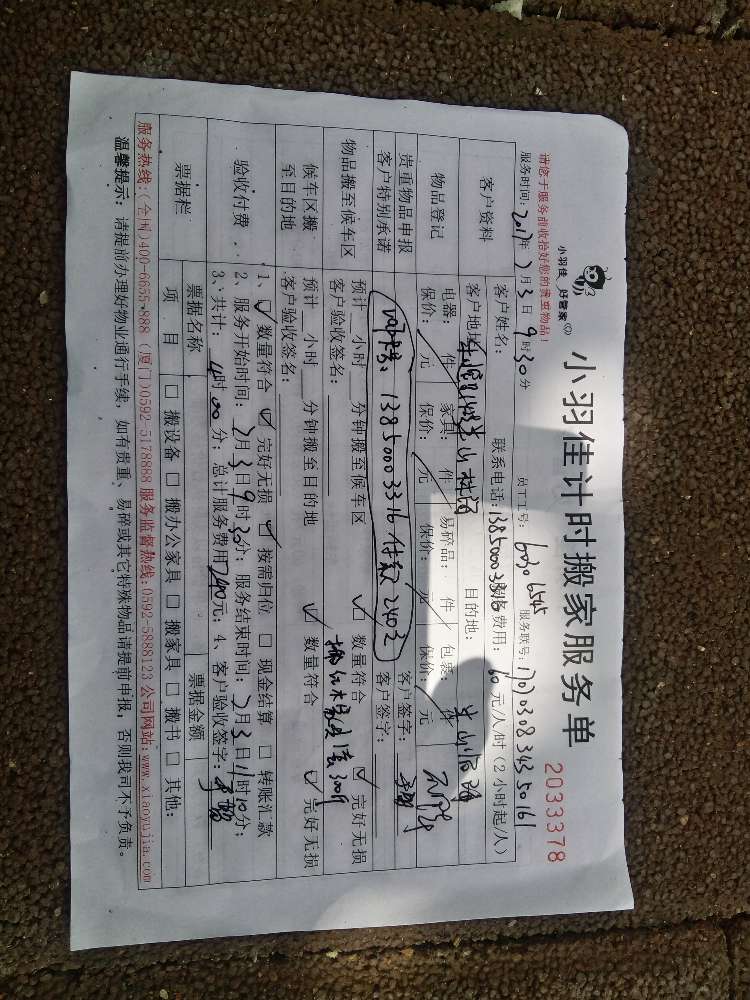 小羽佳 好管家
小羽佳计时搬家服务单
请您于服务前收拾好您的贵重物品！
2033378
服务时间：2017年2月3日9时30分 员工工号：60306545 服务联号：
客户资料
客户姓名： 联系电话：13850003316 服务费用：60元/人/时（2小时起/人）
客户地址： 目的地：
物品登记
电器： 件 家具： 件 易碎品： 件 包裹： 件
保价： 元 保价： 元 保价： 元 保价： 元
贵重物品申报
客户特别承诺
客户签字：
呼号：13850003316付款240元
客户签字：
物品搬至候车区
预计 小时 分钟搬至候车区 ☑ 数量符合 ☑ 完好无损
客户验收签名：
候车区搬
至目的地
预计 小时 分钟搬至目的地 ☑ 数量符合 ☑ 完好无损
客户验收签名：
验收付费
1、☑ 数量符合 ☑ 完好无损 ☑ 按需归位 □ 现金结算 □ 转账汇款
2、服务开始时间：2月3日9时30分；服务结束时间：2月3日11时10分；
3、共计：4时00分；总计服务费用240元；4、客户验收签字：
票据栏
票据名称 票据金额
项 目 □ 搬设备 □ 搬办公家具 □ 搬家具 □ 搬书 □ 其他：
服务热线：（全国）400-6655-888（厦门）0592-5178888 服务监督热线：0592-5888123 公司网站：www.xiaoyujia.com
温馨提示：请提前办理好物业通行手续，如有贵重、易碎或其它特殊物品请提前申报，否则我司不予负责。